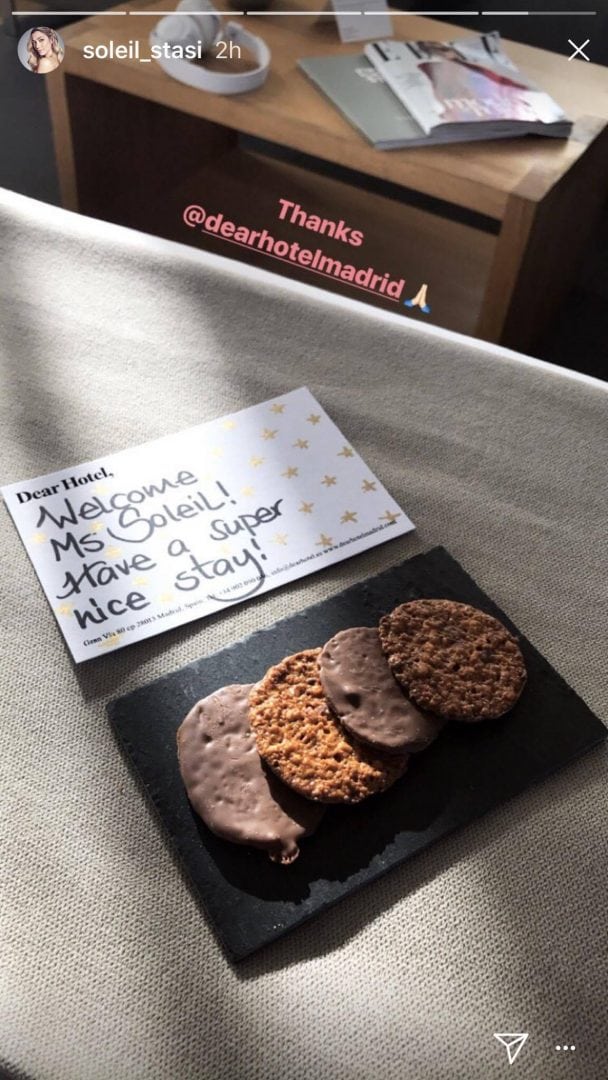 soleil_stasi 2h
ELLE
Thanks
@dearhotelmadrid🙏🏻
Dear Hotel,
Welcome
Ms Soleil!
Have a super
nice stay!
Gran Vía 80 cp 28013 Madrid, Spain. info@dearhotel.es www.dearhotelmadrid.com